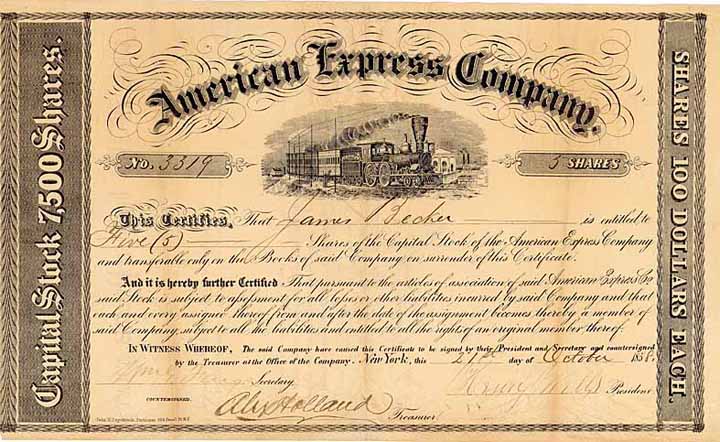 American Express Company.
No. 3319
5 SHARES
Capital Stock 7,500 Shares.
SHARES 100 DOLLARS EACH.
This Certifies, That James Becker is entitled to
Five (5) Shares of the Capital Stock of the American Express Company
and transferable only on the Books of said Company on surrender of this Certificate.
And it is hereby further Certified That pursuant to the articles of association of said American Express Co
said Stock is subject to assessment for all losses or other liabilities incurred by said Company and that
each and every assignee thereof from and after the date of the assignment becomes thereby a member of
said Company, subject to all the liabilities and entitled to all the rights of an original member thereof.
IN WITNESS WHEREOF, The said Company have caused this Certificate to be signed by their President and Secretary and countersigned
by the Treasurer at the Office of the Company. New York, this 21st day of October 1858.
Secretary.
Henry Wells President
COUNTERSIGNED.
Alex Holland Treasurer.